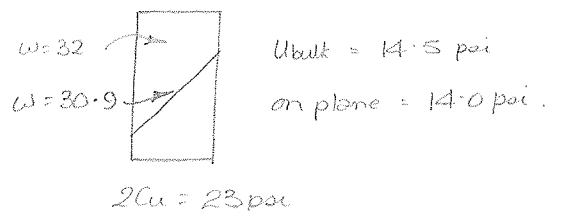 w=32
w=30.9
Ubulk = 14.5 psi
on plane = 14.0 psi.
2Cu = 23 psi